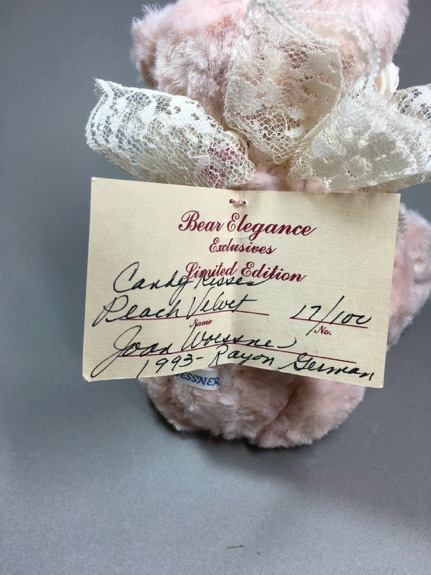 Bear Elegance
Exclusives
Limited Edition
Candy Kisses
Peach Velvet 17/100
Name No.
Joan Woessner
1993- Rayon German
ESSNER